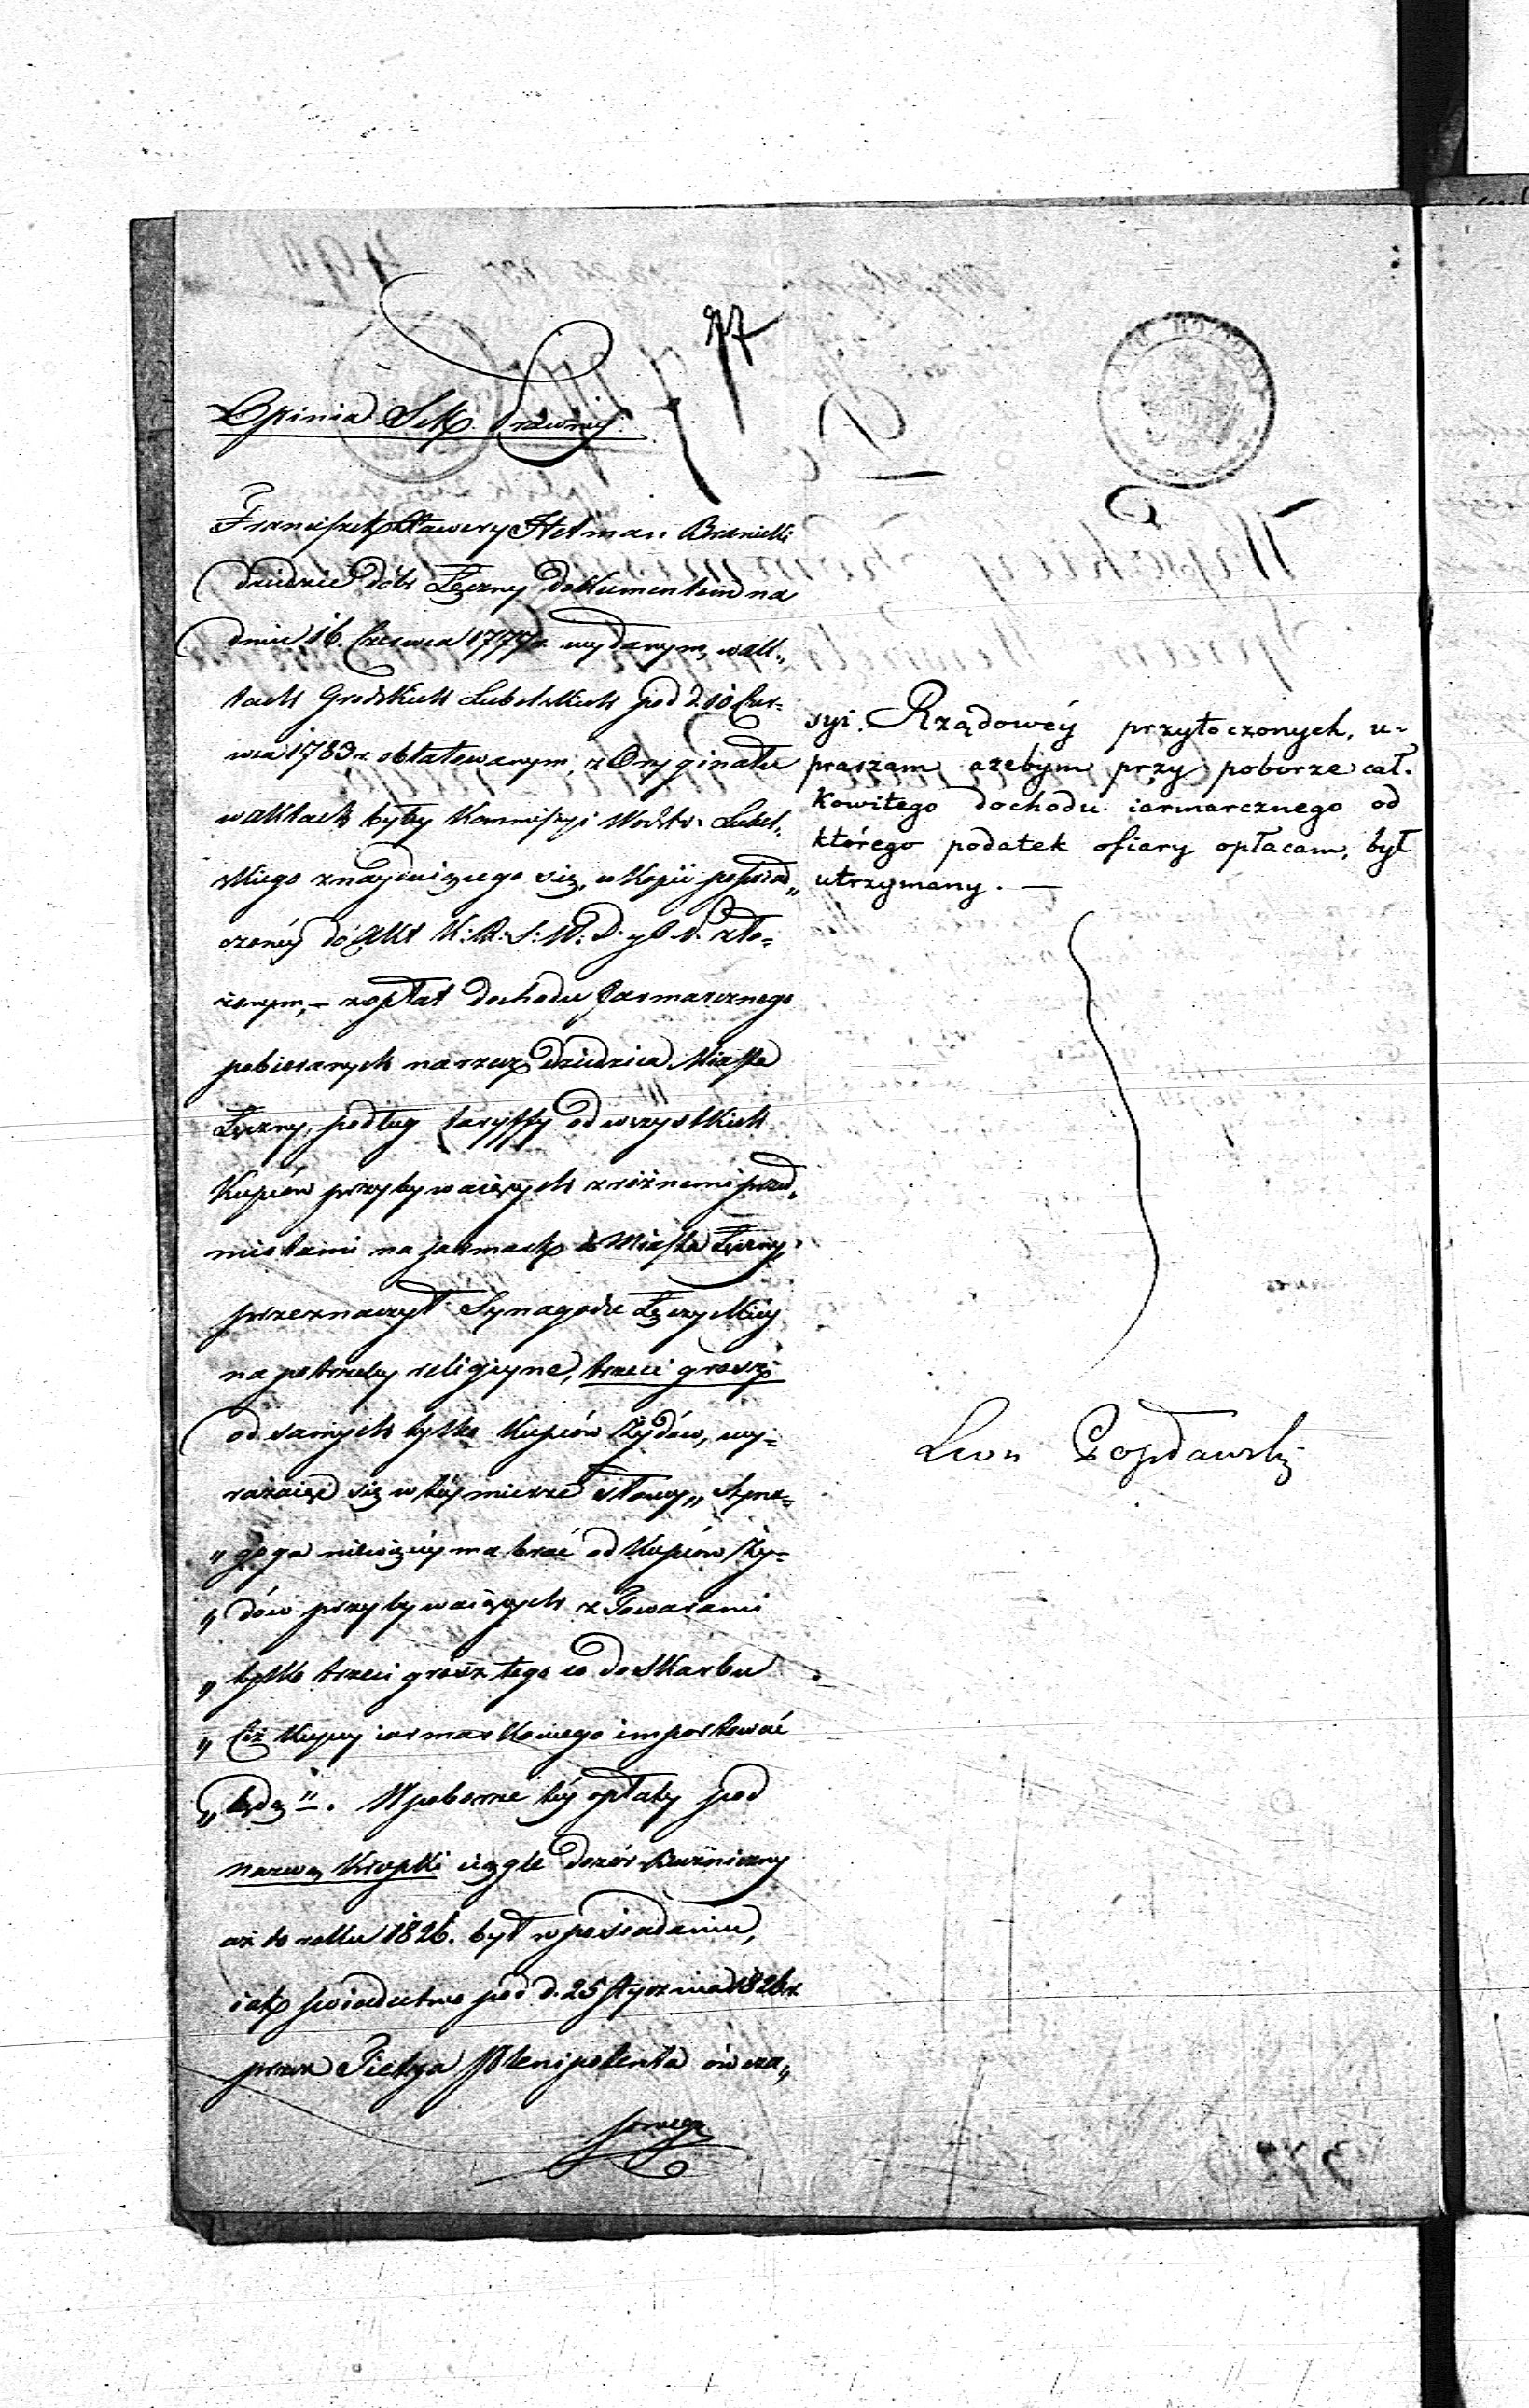 77
Opinia Sek. Prawnéj.
Franciszek Xawery Hetman Branicki
dziedzic dóbr Łęczny dokumentem na
dniu 16. Czerwca 1777 r. wydanym, w Ak-
tach Grodzkich Lubelskich pod d. 10 Czer-
wca 1783 r. oblatowanym, z Oryginału
w aktach byłey Kommissyi Wodztw: Lubel-
skiego znaydującego się, w kopii poświad-
czonéy do Akt K: R: S: W: D. y O. P. zło-
żonym, – z opłat dochodu Jarmarcznego
pobieranych na rzecz dziedzica Miasta
Łęczny, podług taryffy od wszystkich
Kupców przybywaiących z różnemi przed-
miotami na jarmark do Miasta Łęczny,
przeznaczył Synagodze Łęczyckiey
na potrzeby religiyne, trzeci grosz
od samych tylko Kupców Żydów, wy-
rażaiąc się w téy mierze słowy „Syna-
„goga niewięcéy ma brać od Kupców Ży-
„dów przybywaiących z Towarami
„tylko trzeci grosz tego co do Skarbu
„Ciż Kupcy iarmarkowego importować
„będą". W poborze téy opłaty pod
nazwą Kropki ciągle dozór Bużniczny
aż do roku 1826. był w posiadaniu,
iak świadectwo pod d. 25 Stycznia 1826 r.
przez Pleni­potenta ówcza-
snego
syi Rządowéy przytoczonych, u-
praszam ażebym przy poborze cał-
kowitego dochodu iarmarcznego od
którego podatek ofiary opłacam, był
utrzymany. —
Leon